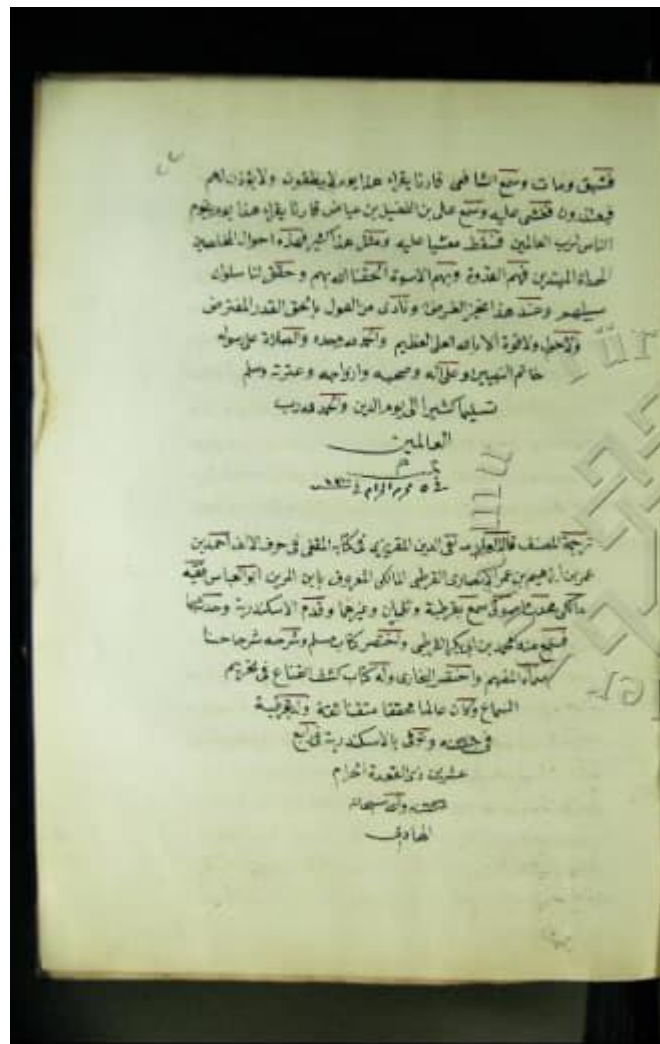 فشهق ومات وسمع الشافعى قارئا يقراء هذا يوم لا ينطقون ولا يؤذن لهم
فيعتذرون فغشى عليه وسمع على بن الفضيل بن عياض قارئا يقراء هذا يوم يقوم
الناس لرب العالمين فسقط مغشيا عليه ومثل هذا كثير فهذه احوال المخلصين
الهداة المهتدين فبهم القدوة وبهم الاسوة الحقنا الله بهم وحقق لنا سلوك
سبيلهم وعند هذا نجز الغرض وتأدى من القول بالحق القدر المفترض
ولا حول ولا قوة الا بالله العلى العظيم والحمد لله وحده والصلاة على رسوله
خاتم النبيين وعلى آله وصحبه وازواجه وعترته وسلم
تسليما كثيرا الى يوم الدين والحمد لله رب
العالمين
تم
فى ٥ محرم الحرام
ترجمة المصنف قال تقى الدين المقريزى فى كتابه المقفى فى حرف الالف احمد بن
عمر بن ابراهيم بن عمر الانصارى القرطبى المالكى المعروف بابن المزين ابو العباس فقيه
مالكى محدث سمع بقرطبة وتلمسان وغيرهما وقدم الاسكندرية وحدث بها
محمد بن ابى بكر القرطبى واختصر كتاب مسلم وشرحه شرحا حسنا
سماه المفهم واختصر البخارى وله كتاب كشف القناع فى تحريم
السماع وكان عالما محققا متقنا ثقة ولد بقرطبة
فى وتوفى بالاسكندرية فى رابع
عشرين ذى القعدة الحرام
سبحانه
الهادى